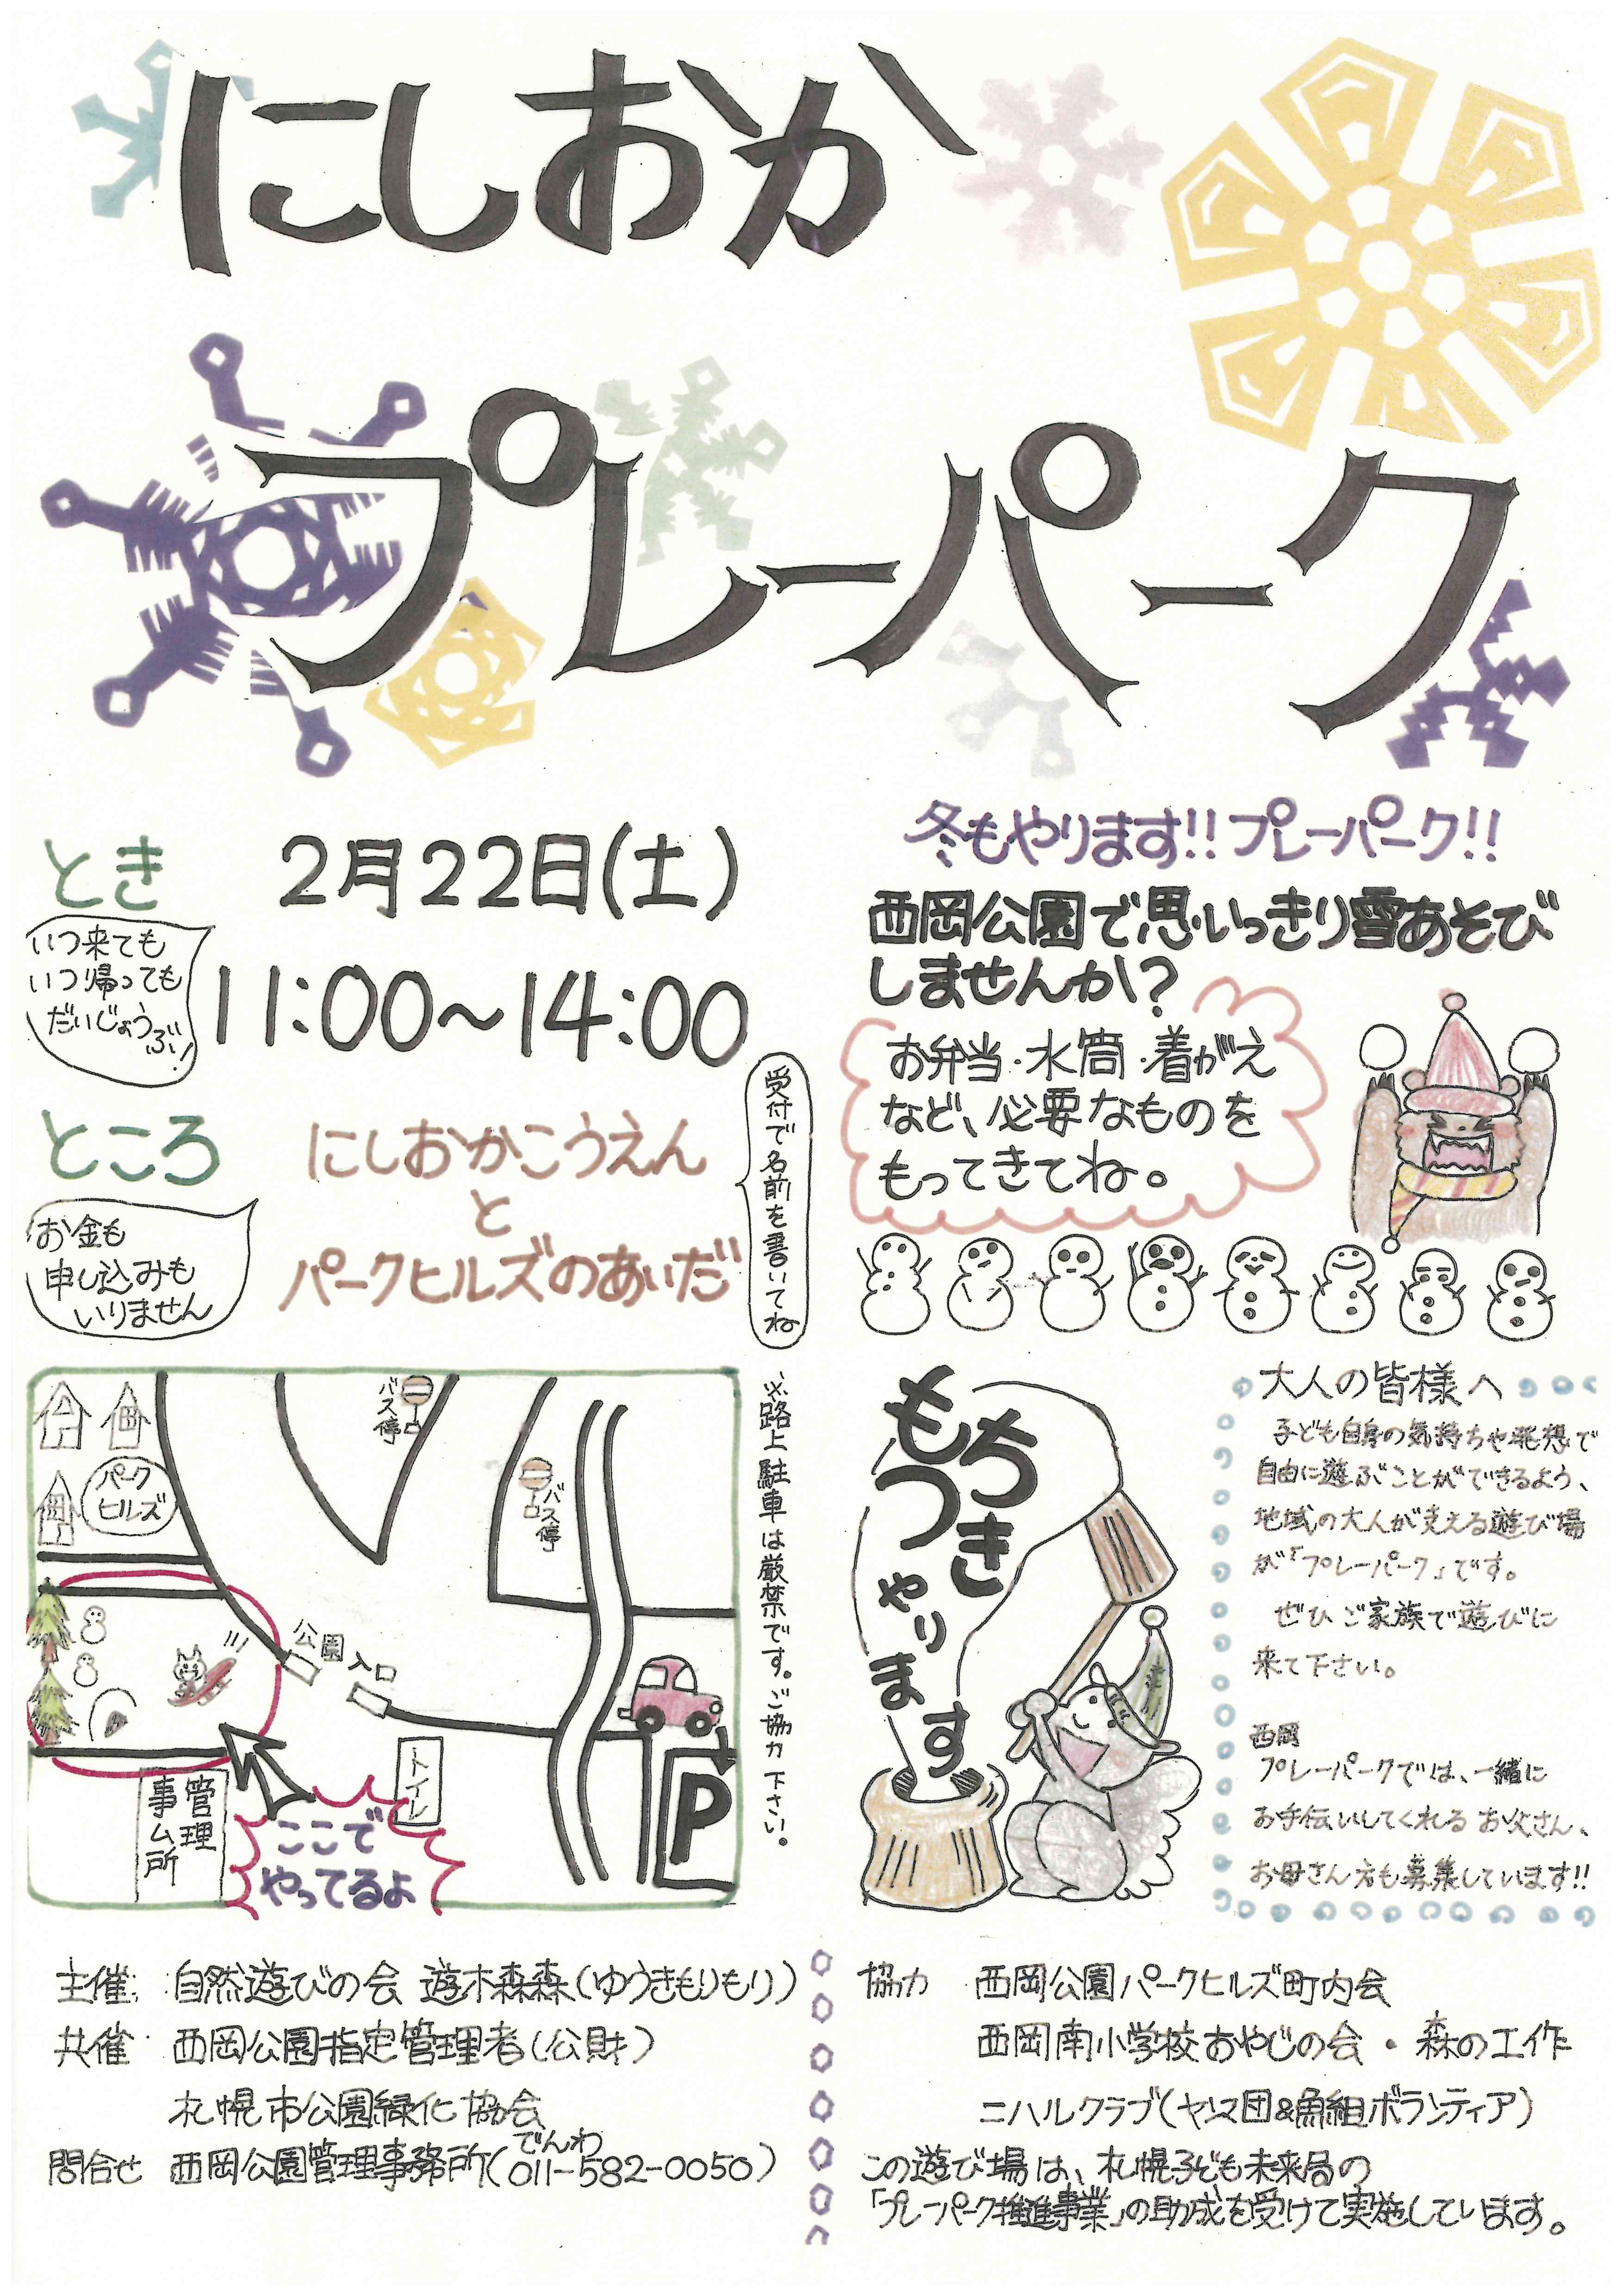 にしおか
プレーパーク
とき
2月22日(土)
11:00～14:00
いつ来ても
いつ帰っても
だいじょうぶ!
ところ
にしおかこうえん
と
パークヒルズのあいだ
お金も
申し込みも
いりません
受付で名前を書いてね
冬もやります!!プレーパーク!!
西岡公園で思いっきり雪あそび
しませんか?
お弁当・水筒・着がえ
など、必要なものを
もってきてね。
バス停
バス停
パーク
ヒルズ
公園入口
トイレ
管理
事ム所
P
ここで
やってるよ
※路上駐車は厳禁です。ご協力下さい。
もちつき
やります
大人の皆様へ
子ども自身の気持ちや発想で
自由に遊ぶことができるよう、
地域の大人が支える遊び場
が「プレーパーク」です。
ぜひご家族で遊びに
来て下さい。
西岡
プレーパークでは、一緒に
お手伝いしてくれるお父さん、
お母さん方も募集しています!!
主催: 自然遊びの会 遊木森森(ゆうきもりもり)
共催 西岡公園指定管理者(公財)
札幌市公園緑化協会
問合せ 西岡公園管理事務所(011-582-0050)
でんわ
協力 西岡公園パークヒルズ町内会
西岡南小学校おやじの会・森の工作
ニハルクラブ(ヤンマ団&魚組ボランティア)
この遊び場は、札幌子ども未来局の
「プレーパーク推進事業」の助成を受けて実施しています。